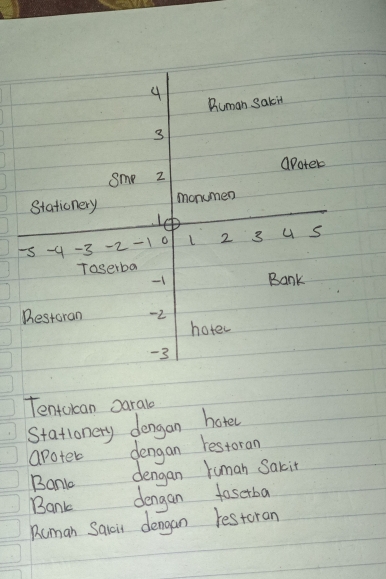 4
Rumah Sakit
3
apotek
Smp 2
Stationery monumen
1
-5 -4 -3 -2 -1 0 1 2 3 4 5
Toserba
-1 Bank
Restoran -2
hotel
-3
Tentukan Jarak
Stationery dengan hotel
apotek dengan restoran
Bank dengan rumah Sakit
Bank dengan toserba
Rumah Sakit dengan restoran